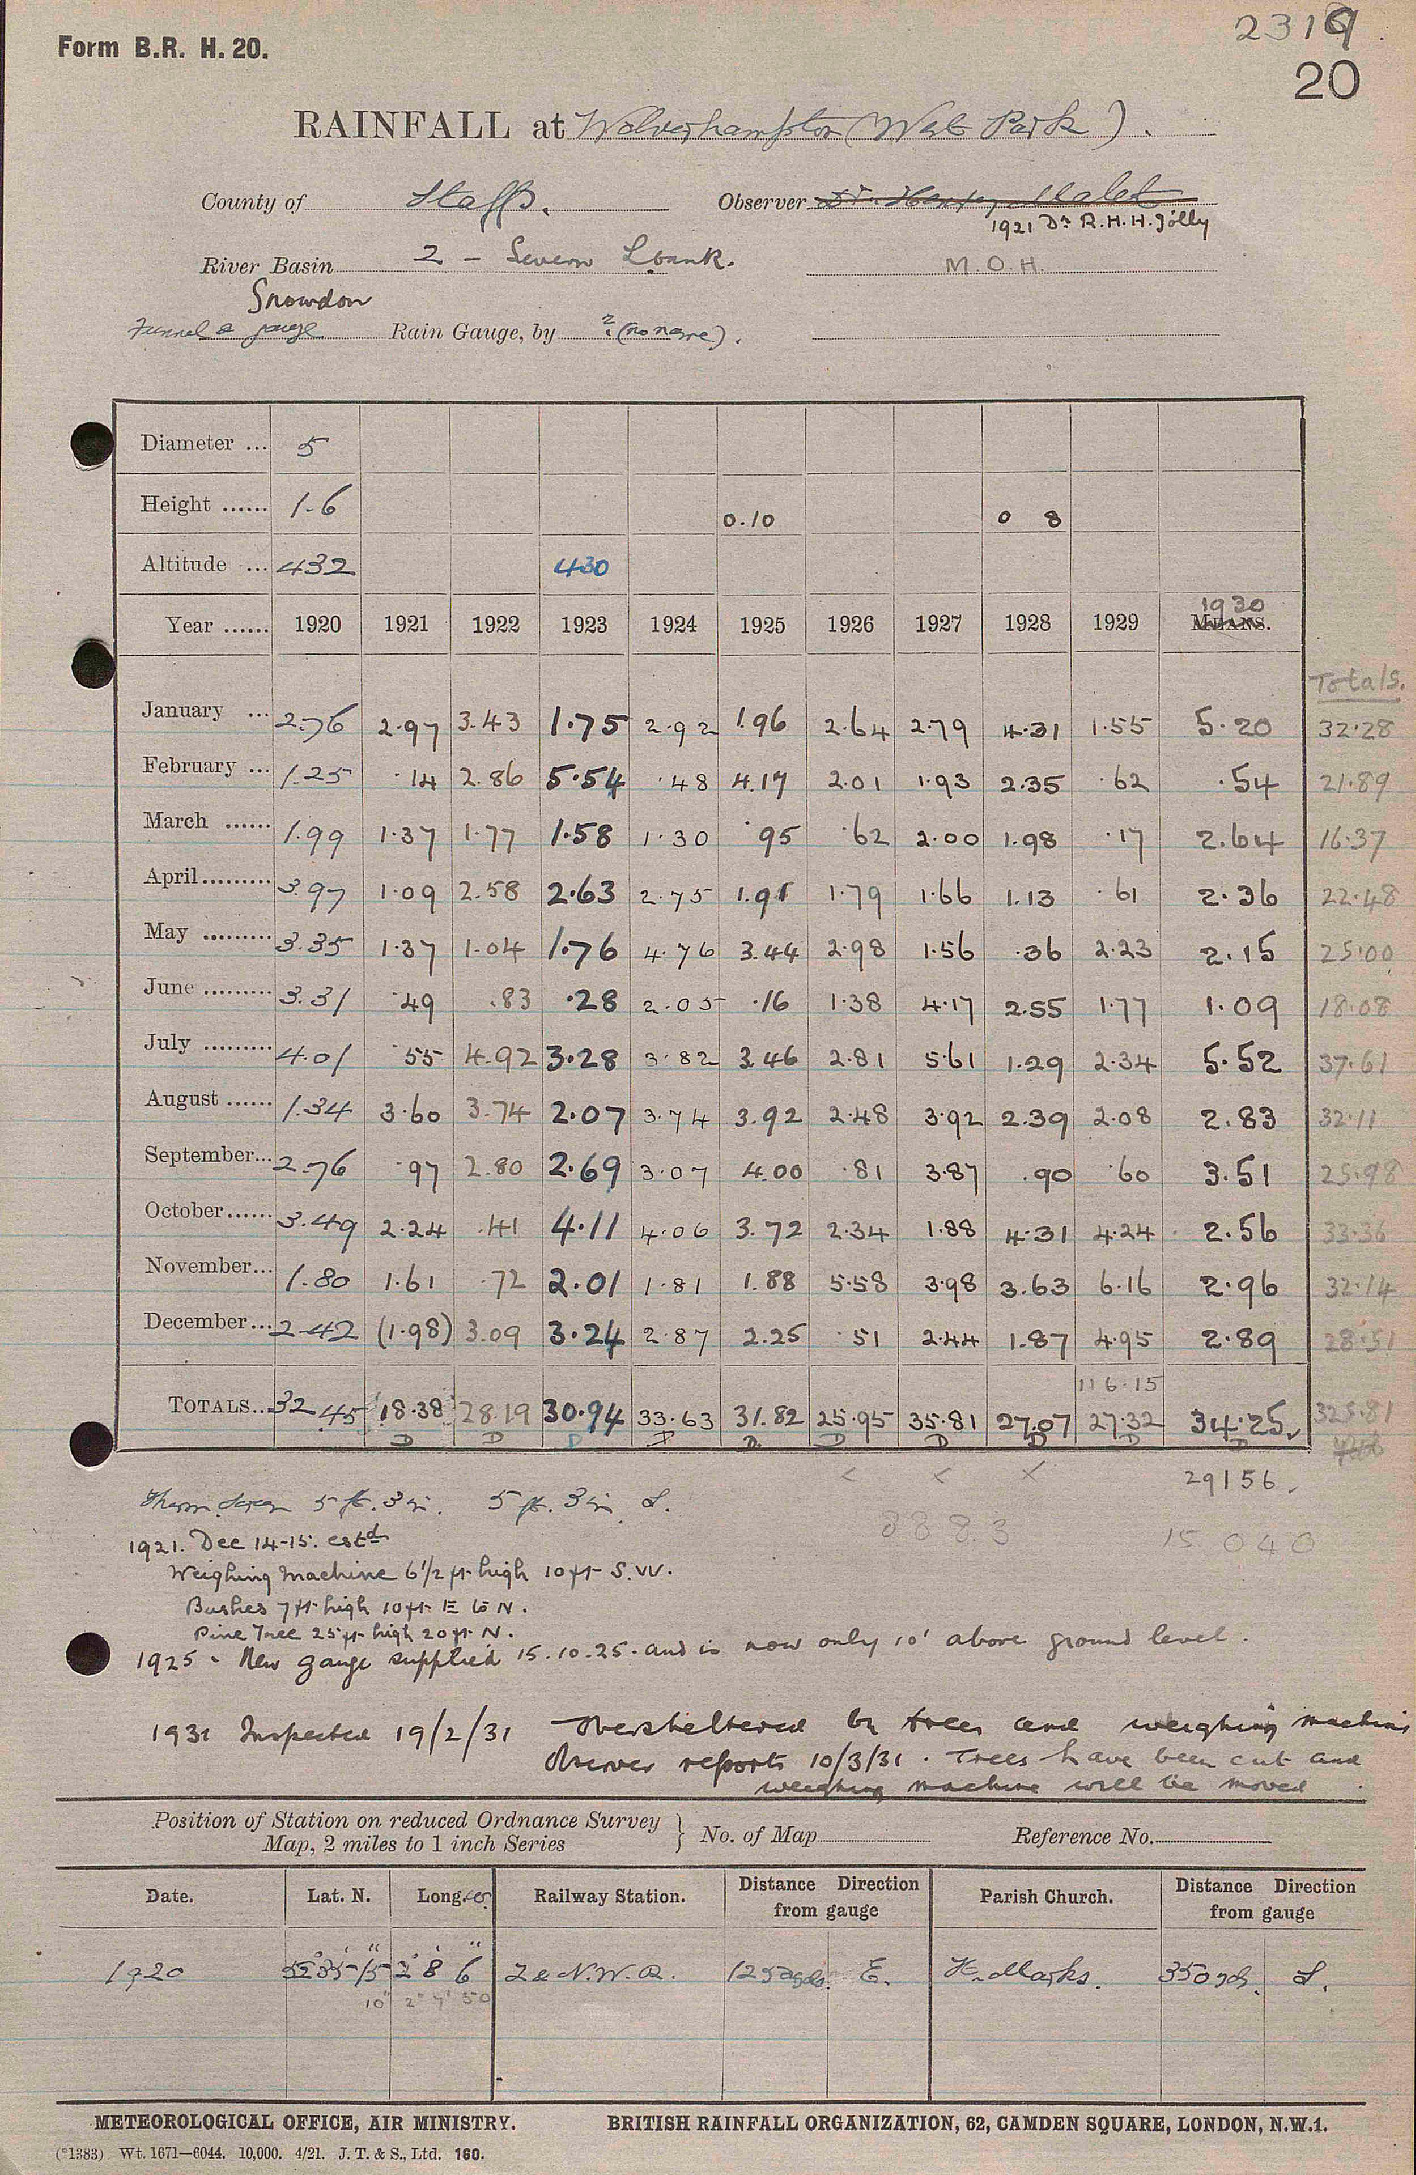 Form B.R. H. 20.
2319
20
RAINFALL at Wolverhampton (West Park).
County of Staffs. Observer Dr. Henry Malet
1921 Dr R.H.H. Jolly
River Basin 2 - Severn M.O.H.
Snowdon
Funnel & gauge Rain Gauge, by ? (no name).
Diameter ... 5
Height ...... 1.6 0.10 0 8
Altitude ... 432 430
1930
Year ...... 1920 1921 1922 1923 1924 1925 1926 1927 1928 1929 MEANS.
Totals.
January ... 2.76 2.97 3.43 1.75 2.92 1.96 2.64 2.79 4.31 1.55 5.20 32.28
February ... 1.25 .14 2.86 5.54 .48 4.17 2.01 1.93 2.35 .62 .54 21.89
March ...... 1.99 1.37 1.77 1.58 1.30 .95 .62 2.00 1.98 .17 2.64 16.37
April......... 3.97 1.09 2.58 2.63 2.75 1.91 1.79 1.66 1.13 .61 2.36 22.48
May ......... 3.35 1.37 1.04 1.76 4.76 3.44 2.98 1.56 .36 2.23 2.15 25.00
June ......... 3.31 .49 .83 .28 2.05 .16 1.38 4.17 2.55 1.77 1.09 18.08
July ......... 4.01 .55 4.92 3.28 3.82 3.46 2.81 5.61 1.29 2.34 5.52 37.61
August ...... 1.34 3.60 3.74 2.07 3.74 3.92 2.48 3.92 2.39 2.08 2.83 32.11
September... 2.76 .97 2.80 2.69 3.07 4.00 .81 3.87 .90 .60 3.51 25.98
October...... 3.49 2.24 .41 4.11 4.06 3.72 2.34 1.88 4.31 4.24 2.56 33.36
November... 1.80 1.61 .72 2.01 1.81 1.88 5.58 3.98 3.63 6.16 2.96 32.14
December... 2.42 (1.98) 3.09 3.24 2.87 2.25 .51 2.44 1.87 4.95 2.89 28.51
116.15
TOTALS... 32.45 18.38 28.19 30.94 33.63 31.82 25.95 35.81 27.07 27.32 34.25 325.81
D D D D D D D D D D
29156.
Therm. Screen 5 ft. 3 in. 5 ft. 3 in S.
8883 15 040
1921. Dec 14-15. estd
Weighing machine 6 1/2 ft high 10 ft S.W.
Bushes 7 ft high 10 ft E to N.
Pine Tree 25 ft high 20 ft N.
1925. New gauge supplied 15.10.25. and is now only 10' above ground level.
1931 Inspected 19/2/31 Oversheltered by trees and weighing machine
Observer reports 10/3/31. Trees have been cut and
weighing machine will be moved
Position of Station on reduced Ordnance Survey
Map, 2 miles to 1 inch Series } No. of Map Reference No.
Date. Lat. N. Long. Railway Station. Distance Direction from gauge Parish Church. Distance Direction from gauge
1920 52° 35' 15" 2° 8' 6" L & N.W.R. 1252 yds. E. St. Marks. 350 yds. S.
10" 2° 7' 50
METEOROLOGICAL OFFICE, AIR MINISTRY. BRITISH RAINFALL ORGANIZATION, 62, CAMDEN SQUARE, LONDON, N.W.1.
(*1383) Wt. 1671—6044. 10,000. 4/21. J. T. & S., Ltd. 160.